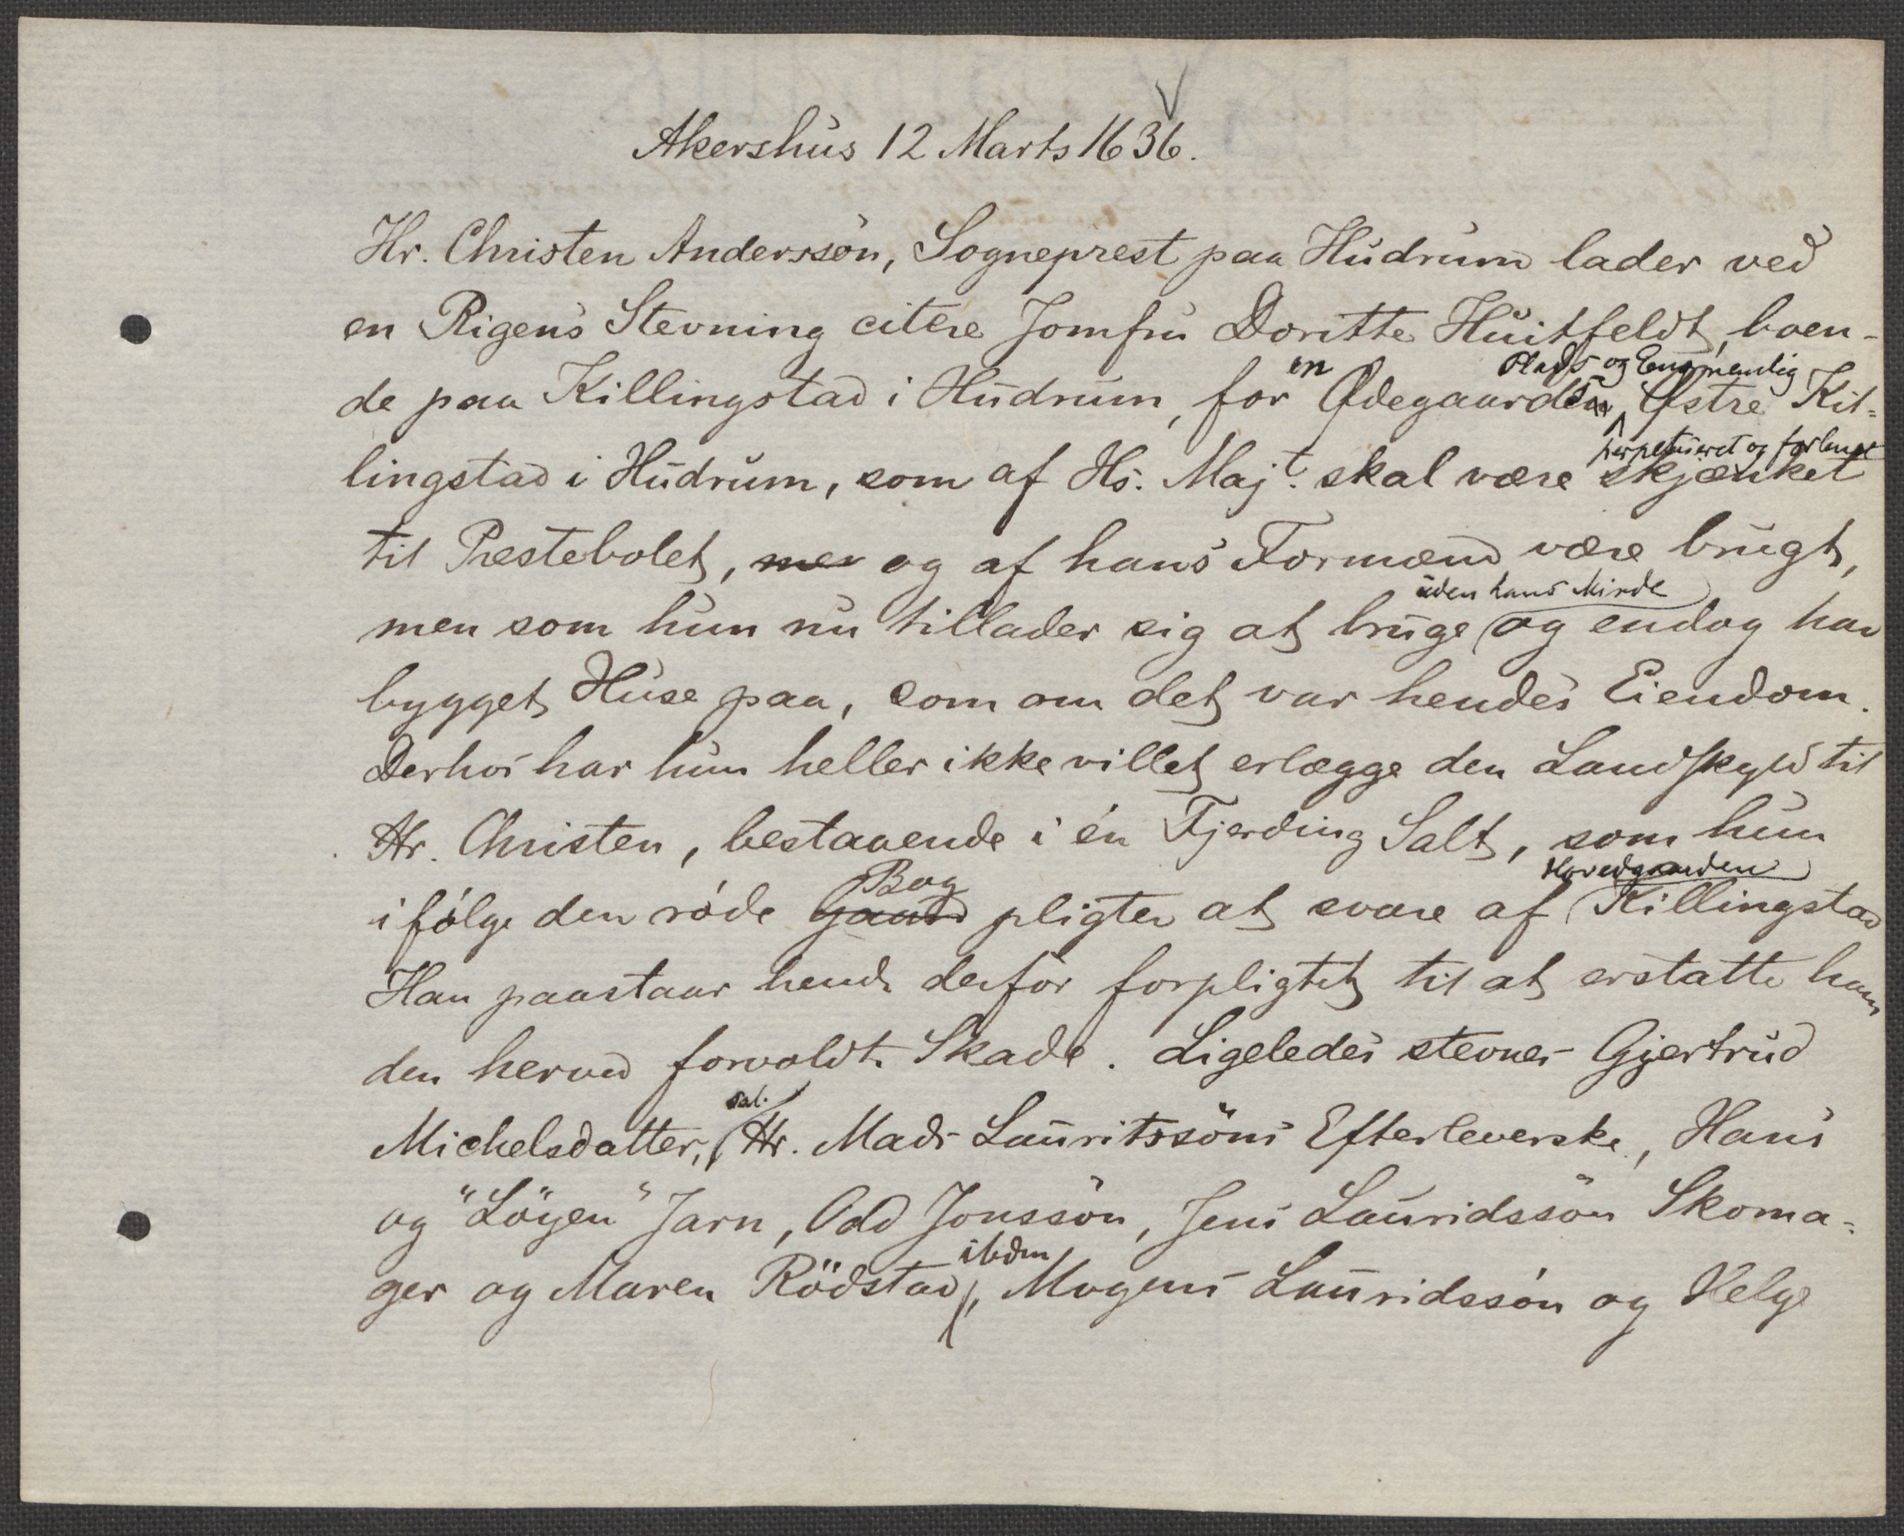 Akershus 12 Marts 1636.
Hr. Christen Anderssøn, Sogneprest paa Hudrum lader ved
en Rigens Stevning citere Jomfru Doritte Huitfeldt, boen-
de paa Killingstad i Hudrum, for en Ødegaards Plads og Eng, nemlig Østre Kil=
lingstad i Hudrum, som af Hs. Majt. skal være perpetueret og forlenet skjænket
til Prestebolet, men og af hans Formænd være brugt,
men som hun nu tillader sig at bruge uden hans Minde og endog har
bygget Huse paa, som om det var hendes Eiendom.
Derhos har hun heller ikke villet erlægge den Landskyld til
Hr. Christen, bestaaende i én Fjerding Salt, som hun
ifølge den røde Bog pligter at svare af Hovedgaarden Killingstad
Han paastaar hende derfor forpligtet til at erstatte ham
den herved forvoldte Skade. Ligeledes stevnes Gjertrud
Michelsdatter, sal. Hr. Mads Lauritssöns Efterleverske, Hans
og "Löyen" Jarn, Odd Jonssøn, Jens Lauridssøn Skoma-
ger og Maren Rödstad ibdm, Mogens Lauridssøn og Helge